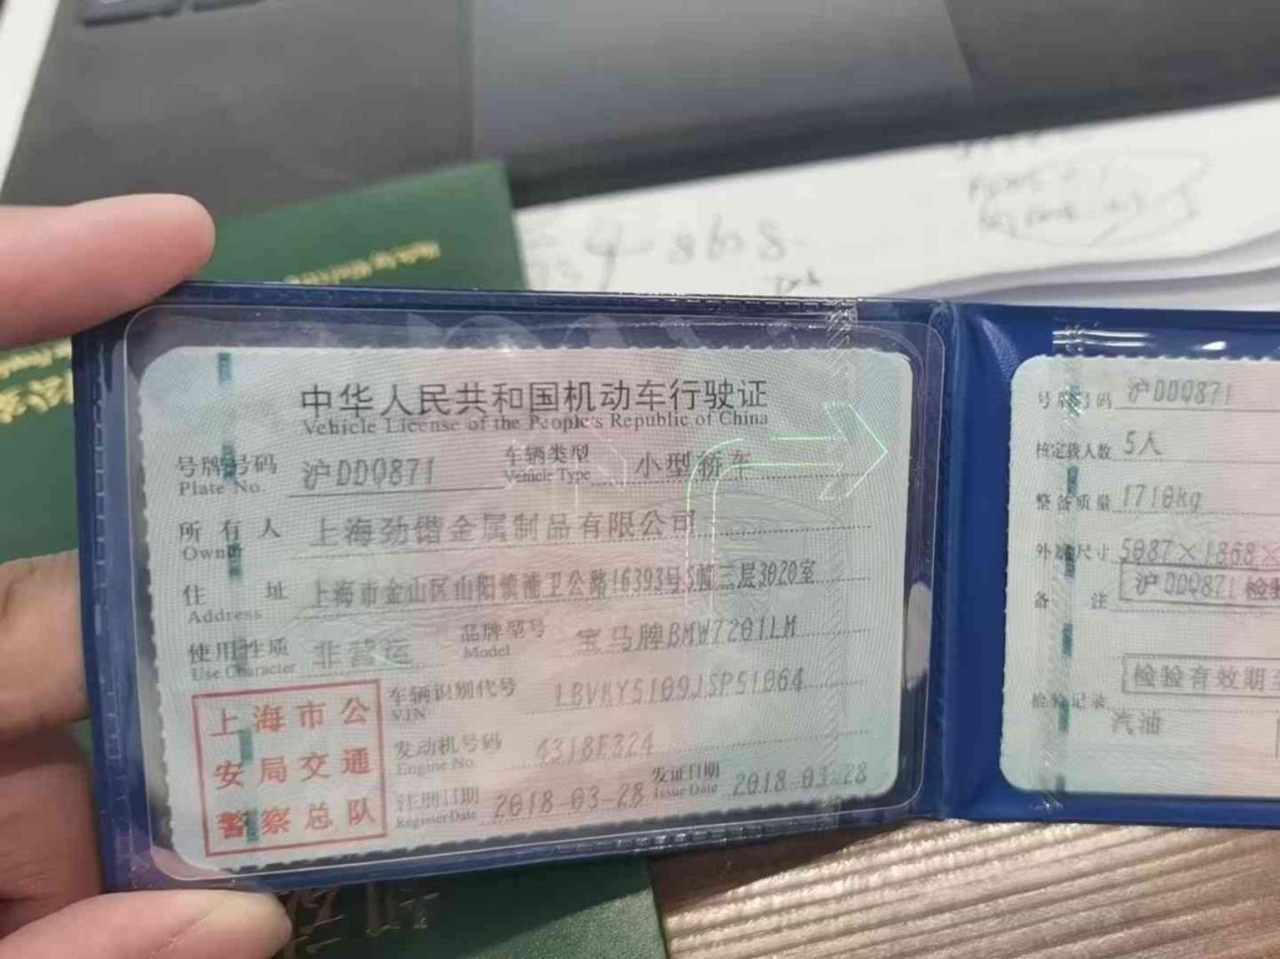 中华人民共和国机动车行驶证
Vehicle License of the People's Republic of China
号牌号码 沪DDQ871 车辆类型 小型轿车
Plate No. Vehicle Type
所有人 上海劲锴金属制品有限公司
Owner
住址 上海市金山区山阳镇浦卫公路16393号5幢三层3020室
Address
使用性质 非营运 品牌型号 宝马牌BMW7201LM
Use Character Model
车辆识别代号 LBVKY5109JSP51064
VIN
发动机号码 4318F324
Engine No.
注册日期 2018-03-28 发证日期 2018-03-28
Register Date Issue Date
上海市公
安局交通
警察总队
号牌号码 沪DDQ871
核定载人数 5人
整备质量 1710kg
外廓尺寸 5087×1868×
备注 沪DDQ871 检验
检验有效期至
检验记录
汽油